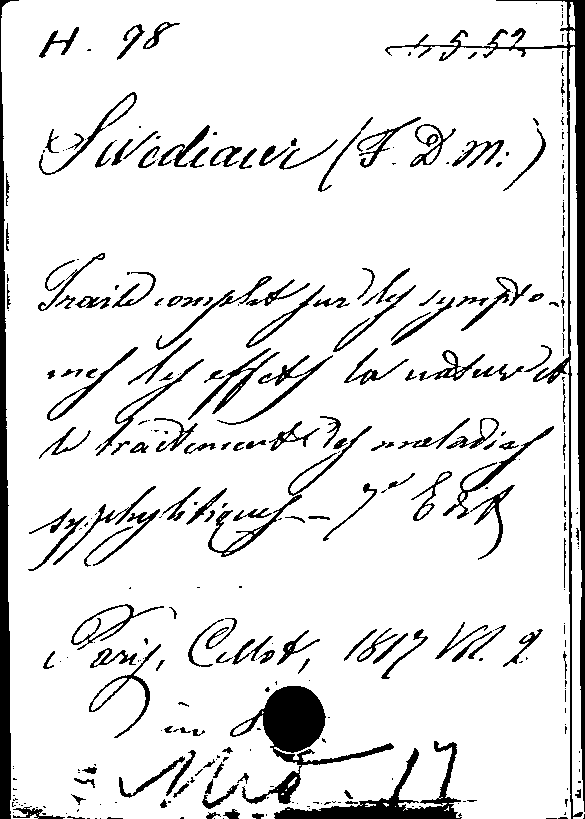 H. 98 45,52
Swediaur (F. D. M.)
Traité complet sur les sympto-
mes les effets la nature et
le traitement des maladies
syphylitiques – 7e Edit
Paris, Cellot, 1817 Vol. 2
in 8
17